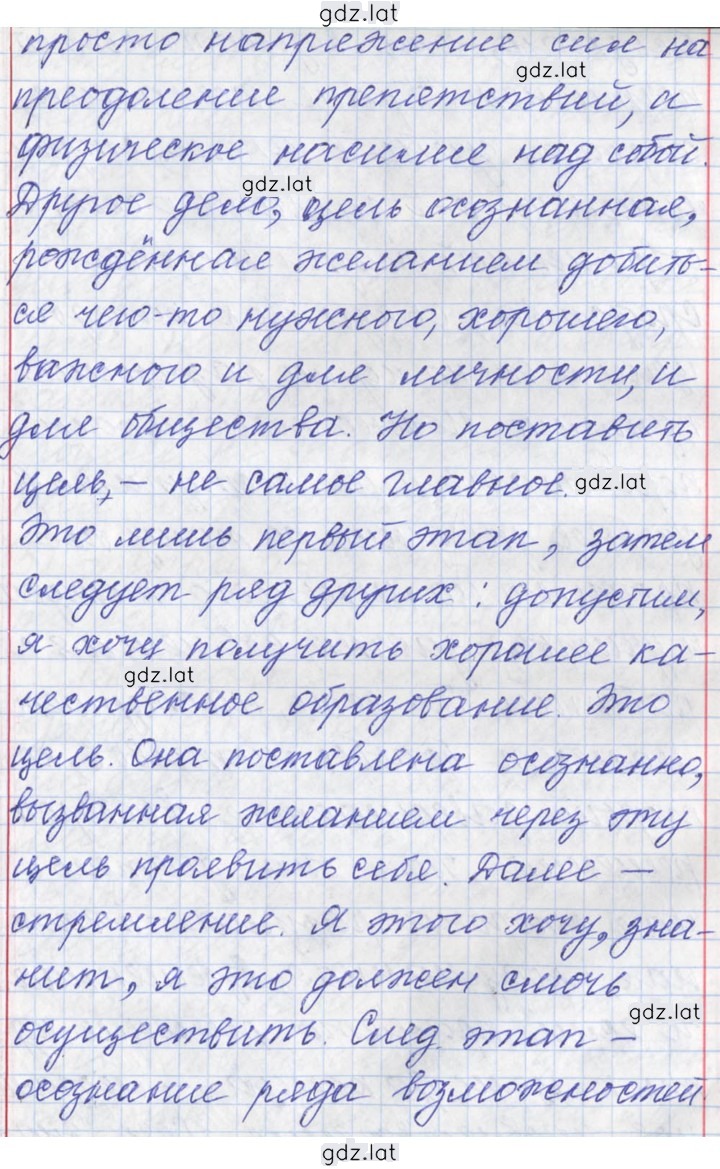 gdz.lat
просто напряжение сил на
gdz.lat
преодоление препятствий, а
физическое насилие над собой.
gdz.lat
Другое дело, цель осознанная,
рождённая желанием добить-
ся чего-то нужного, хорошего,
важного и для личности, и
для общества. Но поставить
цель, – не самое главное.
gdz.lat
Это лишь первый этап, затем
следует ряд других: допустим,
я хочу получить хорошее ка-
gdz.lat
чественное образование. Это
цель. Она поставлена осознанно,
вызванная желанием через эту
цель проявить себя. Далее –
стремление. Я этого хочу, зна-
чит, я это должен смочь
gdz.lat
осуществить. След. этап –
осознание ряда возможностей
gdz.lat